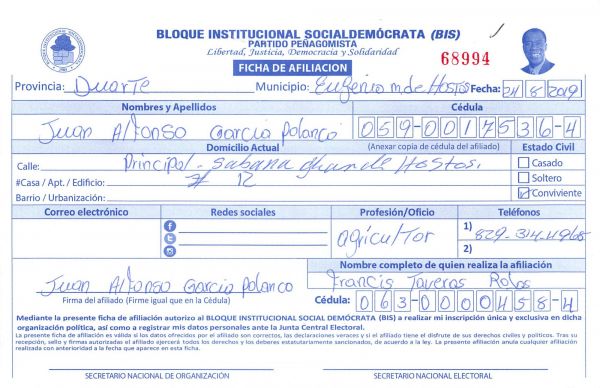 BLOQUE INSTITUCIONAL SOCIALDEMÓCRATA (BIS)
PARTIDO PEÑAGOMISTA
Libertad, Justicia, Democracia y Solidaridad
68994
FICHA DE AFILIACION
Provincia: Duarte Municipio: Eugenio m. de Hostos Fecha: 24/8/2019
Nombres y Apellidos Cédula
Juan Alfonso Garcia Polanco 059-0017536-4
Domicilio Actual (Anexar copia de cédula del afiliado) Estado Civil
Calle: Principal - Sabana grande Hostos. Casado
#Casa / Apt. / Edificio: # 12 Soltero
Barrio / Urbanización: Conviviente
Correo electrónico Redes sociales Profesión/Oficio Teléfonos
agricultor 1) 829-314-4968
2)
Nombre completo de quien realiza la afiliación
Juan Alfonso Garcia Polanco Francis Taveras Rojas
Firma del afiliado (Firme igual que en la Cédula) Cédula: 063-0000458-4
Mediante la presente ficha de afiliación autorizo al BLOQUE INSTITUCIONAL SOCIAL DEMÓCRATA (BIS) a realizar mi inscripción única y exclusiva en dicha
organización política, así como a registrar mis datos personales ante la Junta Central Electoral.
La presente ficha de afiliación es válida si los datos ofrecidos por el afiliado son correctos, las declaraciones veraces y si el afiliado tiene el disfrute de sus derechos civiles y políticos. Tras su
recepción, sello y firmas autorizadas el afiliado ejercerá todos los derechos y los deberes estatutariamente sancionados, de acuerdo a la ley. La presente afiliación anula cualquier afiliación
realizada con anterioridad a la fecha que aparece en esta ficha.
SECRETARIO NACIONAL DE ORGANIZACIÓN SECRETARIO NACIONAL ELECTORAL